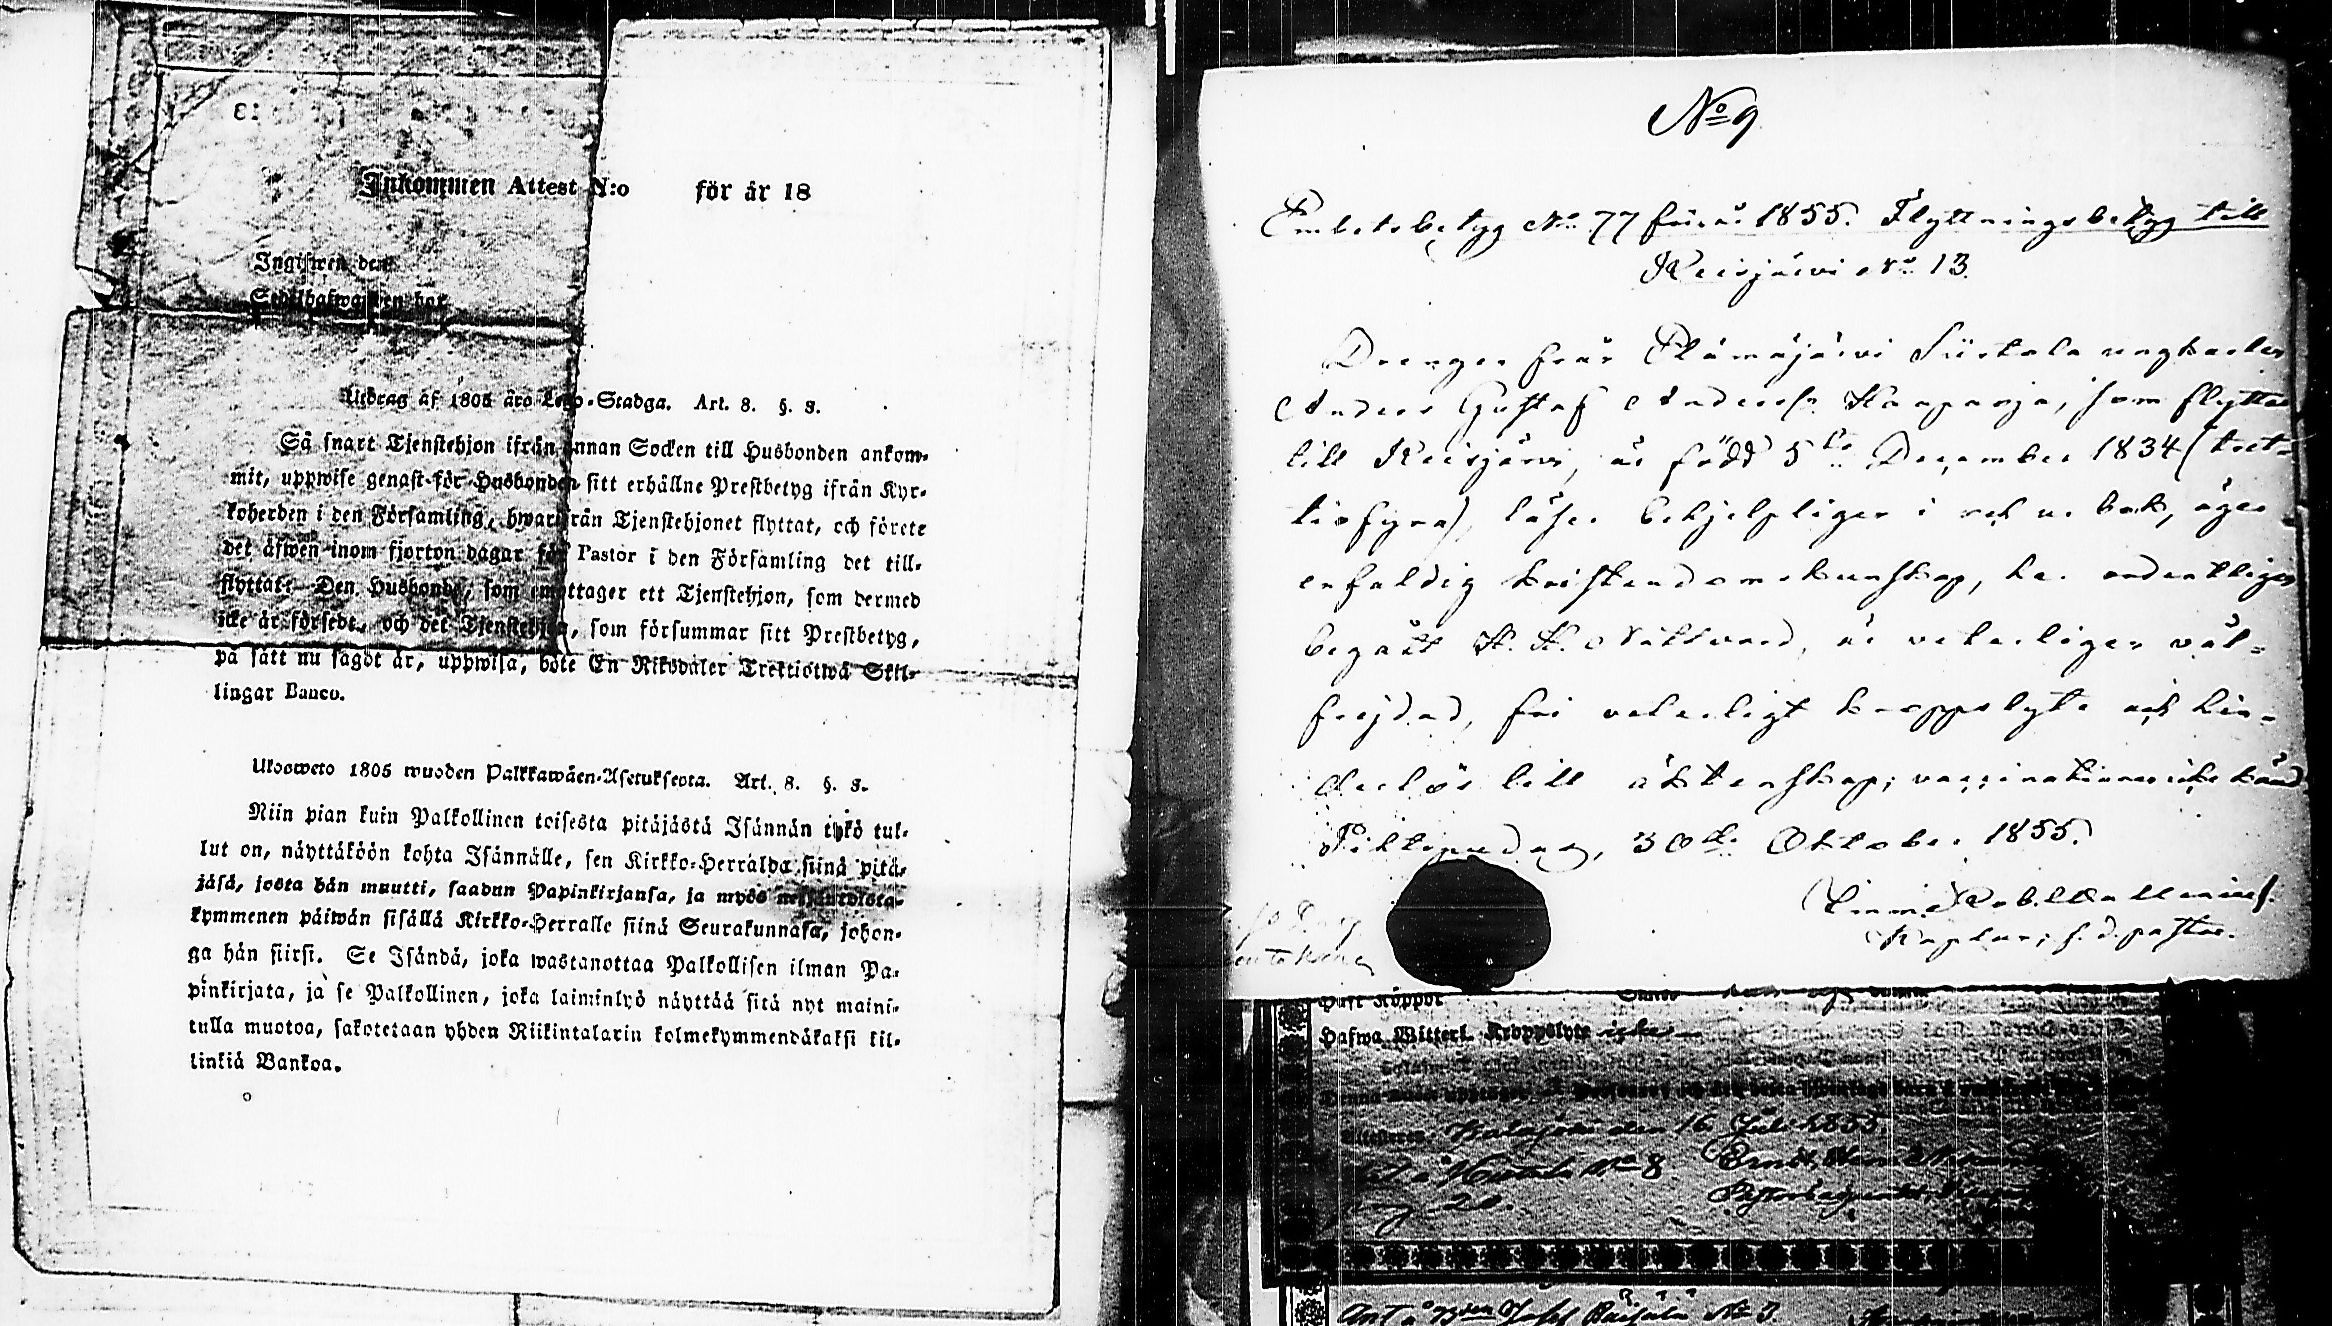 Inkommen Attest N:o för år 18
Ingifwen den
Sedelhafwaren har
Utdrag af 1805 års Lego-Stadga. Art. 8. §. 3.
Så snart Tjenstehjon ifrån annan Socken till Husbonden ankom-
mit, uppwise genast för Husbonden sitt erhållne Prestbetyg ifrån Kyr-
koherden i den Församling, hwarifrån Tjenstehjonet flyttat, och förete
det äfwen inom fjorton dagar för Pastor i den Församling det till-
flyttat. Den Husbonde, som emottager ett Tjenstehjon, som dermed
icke är försedt, och det Tjenstehjon, som försummar sitt Prestbetyg,
på sätt nu sagdt är, uppwisa, böte En Riksdaler Trettiotwå Skil-
lingar Banco.
Ulosweto 1805 wuoden Palkkawäen-Asetuksesta. Art. 8. §. 3.
Niin pian kuin Palkollinen toisesta pitäjästä Isännän tykö tul-
lut on, näyttäköön kohta Isännälle, sen Kirkko-Herralda siinä pitä-
jäsä, josta hän muutti, saadun Papinkirjansa, ja myös neljäntoista-
kymmenen päiwän sisällä Kirkko-Herralle siinä Seurakunnasa, johon-
ga hän siirsi. Se Isändä, joka wastanottaa Palkollisen ilman Pa-
pinkirjata, ja se Palkollinen, joka laiminlyö näyttää sitä nyt maini-
tulla muotoa, sakotetaan yhden Riikintalarin kolmekymmendäkaksi kil-
linkiä Bankoa.
No 9
Embetsbetyg No 77 för år 1855. Flyttningsbetyg till
Reisjärvi No 13.
Drengen från Elämäjärvi Siirtola ungkarlen
Anders Gustaf Anderss. Kaapanja, som flyttar
till Reisjärvi, är född 5te December 1834 (tret-
tiofyra), läser behjelpligen i och ur bok, äger
enfaldig kristendomskunskap, har ordentligen
begått H. H. Nattvard, är veterligen väl-
frejdad, fri veterligt kroppslyte och hin-
derlös till äktenskap; vaccinationen icke känd.
Pihtipudas, 30de Oktober 1855.
Kaplan, s. d. pastor.
Haft Koppor
Hafwa Witterl. Kroppslyte icke
Kalajoki den 16 Juli 1855
No 8
20.